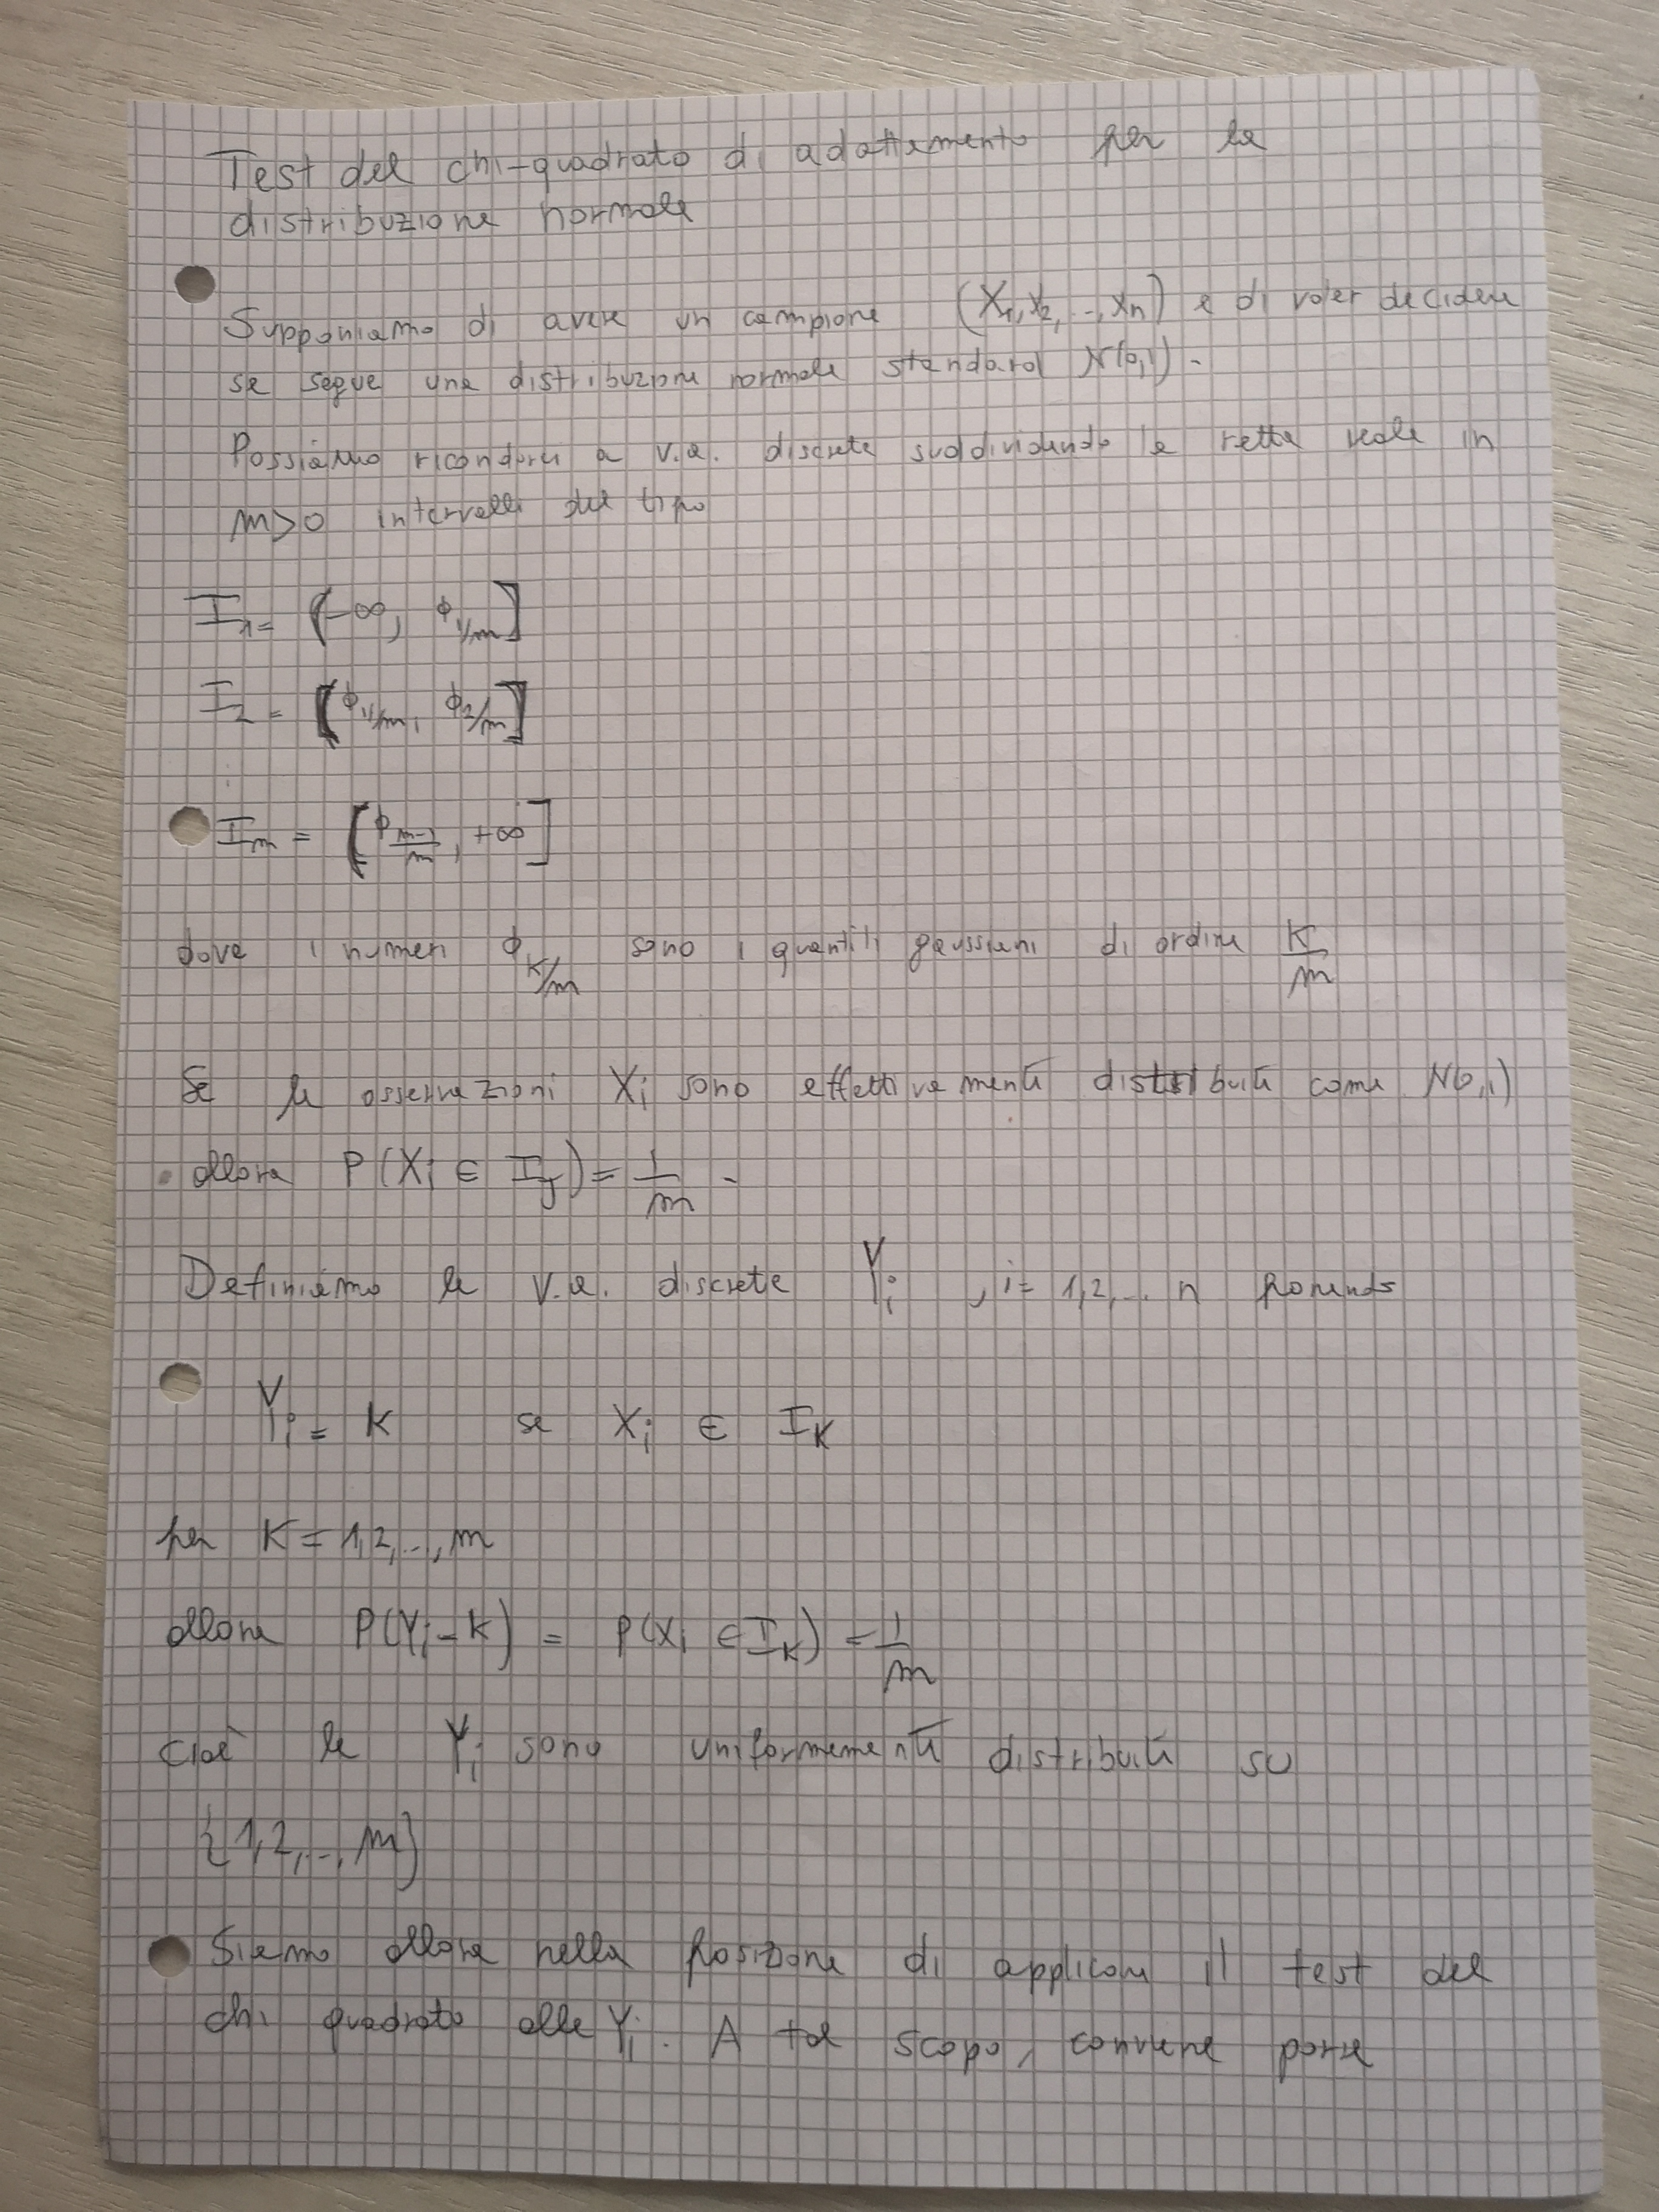 Test del chi-quadrato di adattamento per la
distribuzione normale
Supponiamo di avere un campione (X₁, X₂, .., Xn) e di voler decidere
se segue una distribuzione normale standard N(0,1).
Possiamo ricondurci a v.a. discrete suddividendo la retta reale in
m>0 intervalli del tipo
I₁ = (-∞, ϕ1/m]
I₂ = (ϕ1/m, ϕ2/m]
Im = (ϕ(m-1)/m, +∞]
dove i numeri ϕK/m sono i quantili gaussiani di ordine K/m
Se le osservazioni Xi sono effettivamente distribuite come N(0,1)
allora P(Xi ∈ Ij) = 1/m .
Definiamo le v.a. discrete Yi , i= 1,2,.. n ponendo
Yi = K se Xi ∈ IK
per K = 1,2,..,m
allora P(Yi = K) = P(Xi ∈ IK) = 1/m
Cioè le Yi sono uniformemente distribuite su
{1,2,..,m}
Siamo allora nella posizione di applicare il test del
chi quadrato alle Yi. A tal scopo, conviene porre